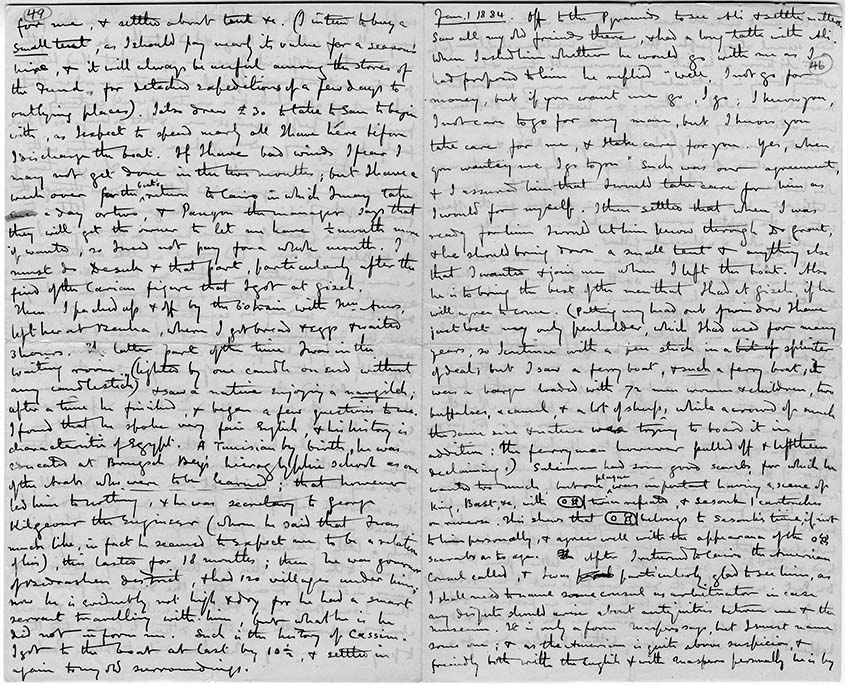 49
for me, & settled about tent &c. (I intend to buy a
small tent, as I should pay nearly its value for a season's
hire, & it will always be useful among the stores of
the Fund, for detached expeditions of a few days to
outlying places). I also drew £30 to take to San to begin
with, as I expect to spend nearly all I have here before
I discharge the boat. If I have bad winds I fear I
may not get done in the two months; but I have a
week over for the boat's return to Cairo in which I may take
a day or two, & the manager, says that
they will get the owner to let me have ½ month more
if wanted, so I need not pay for a whole month. I
must do Desuk & that part, particularly after the
find of the Carian figure that I got at Gizeh.
Then I packed up & off by the 6 o train with Mrs Amos,
left her at Benha, where I got bread & eggs & waited
3 hours. The latter part of the time I was in the
waiting room (lighted by one candle on end without
any candlestick) & saw a native enjoying a nargileh;
after a time he finished, & began a few questions to me.
I found that he spoke very fair English & his history is
characteristic of Egypt. A Tunisian by birth, he was
educated at Brugsch Bey's hieroglyphic school as one
of the Arabs who were to be learned; that however
led him to nothing, & he was secretary to George
Kilgour the Engineer (whom he said that I was
much like, in fact he seemed to expect me to be a relation
of his), this lasted for 18 months; then he was governor
of district, & had 120 villages under him;
now he is evidently not high & dry for he had a smart
servant travelling with him, but what he is he
did not inform me. Such is the history of Cassim.
I got to the boat at last by 10½, & settled in
again to my old surroundings.
Jan. 1 1884. Off to the Pyramids to see Ali & settle matters.
Saw all my old friends there, & had a long talk with Ali.
46
When I asked him whether he would go with me as I
had proposed to him he replied "well, I not go for
money, but if you want me go, I go; I know you,
I not care to go for any man, but I know you
take care for me, & I take care for you. Yes, when
you wanty me, I go to you" Such was our agreement,
& I assured him that I would take care for him as
I would for myself. I then settled that when I was
ready for him I would let him know through Dr Grant,
& he should bring down a small tent & anything else
that I wanted & join me when I left the boat. Also
he is to bring the best of the men that I had at Gizeh, if he
will agree to come. (Putting my head out of window I have
just lost my only penholder, which I had used for many
years, so I continue with a pen stuck in a bit of splinter
of deal; but I saw a ferry boat, & such a ferry boat, it
was a barge loaded with 72 men women & children, two
buffaloes, a camel, & a lot of sheep, while a crowd of much
the same size & nature was trying to board it in
addition: the ferryman however pulled off & left them
declaiming!) Suleiman had some good scarabs, for which he
wanted too much, but one plaque was important having a scene of
king, Bast, &c, with two , & Sesonk I cartouche
on reverse. This shews that belongs to Sesonk's time, if not
to him personally, & agrees well with the appearance of the
scarabs as to age. After I returned to Cairo the American
Consul called, & I was particularly glad to see him, as
I shall need to name some consul as arbitrator in case
any dispute should arise about antiquities between me & the
museum. It is only a form Maspero says, but I must name
some one; & as the American is quite above suspicion, &
friendly both with the English & with Maspero personally he is by